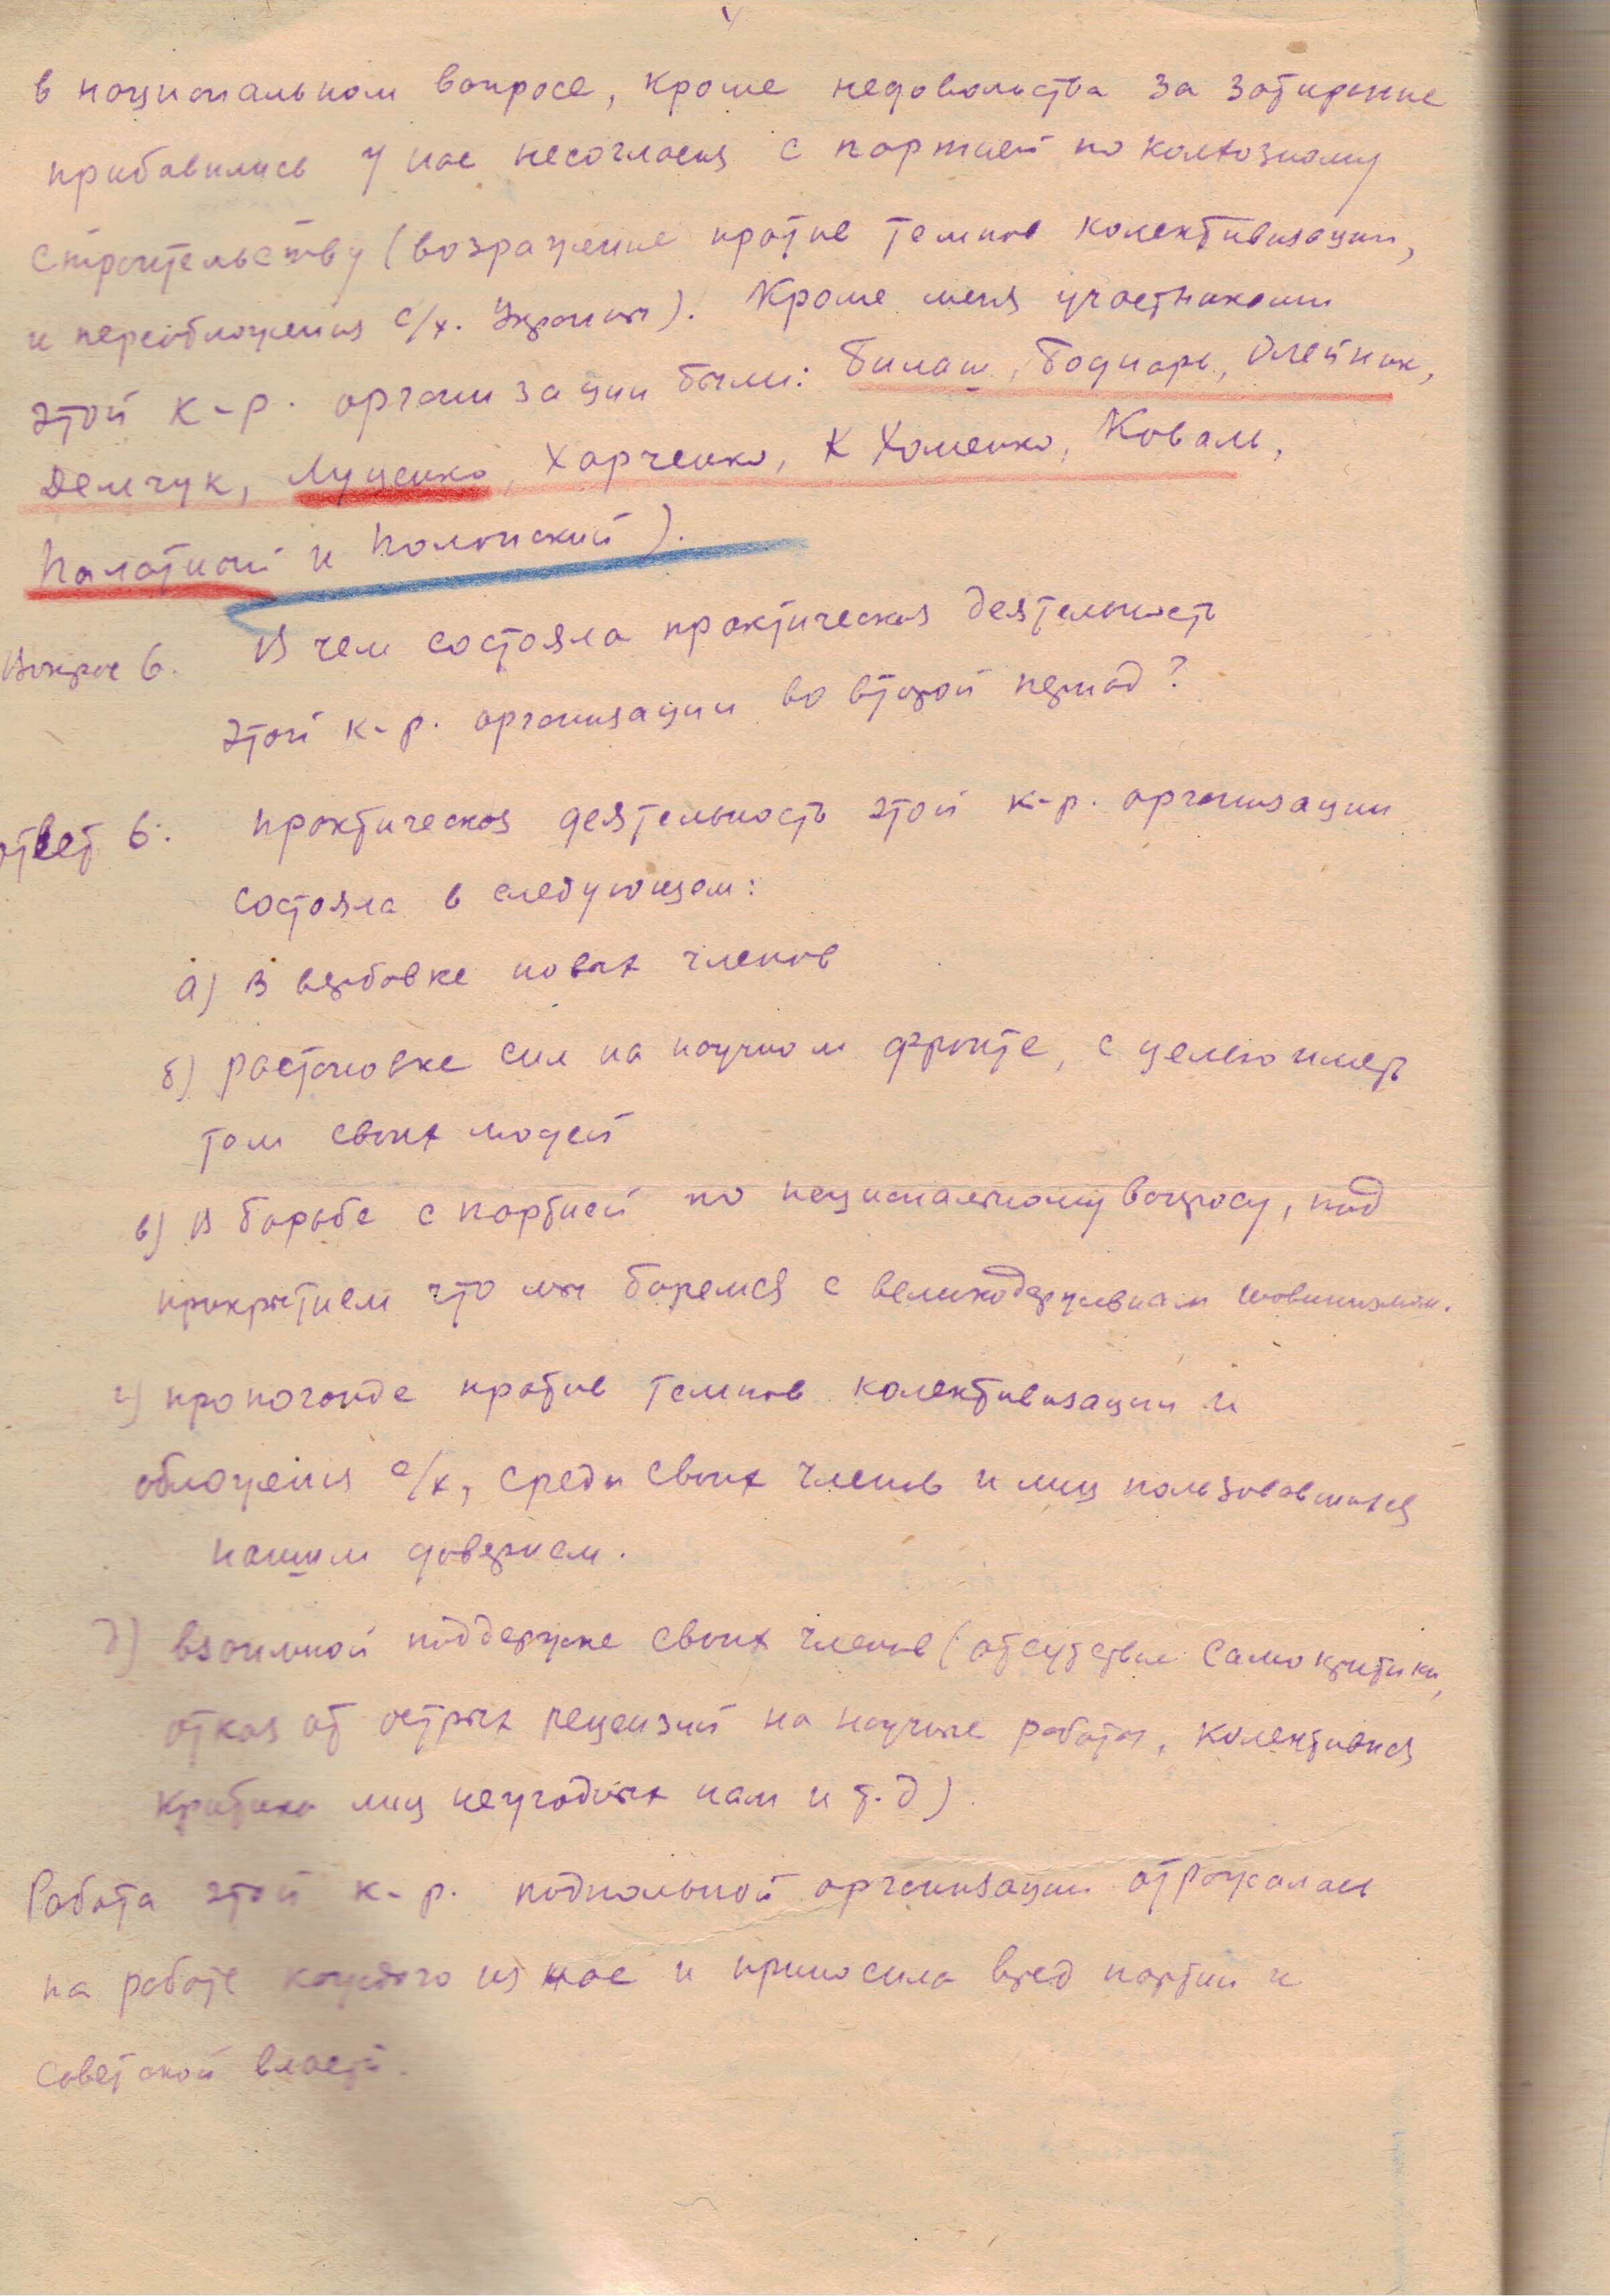 в национальном вопросе, кроме недовольства за затирание
прибавились у нас несогласия с партией по колхозному
строительству (возражение против темпов колективизации,
и переобложения с/х. Украины). Кроме меня участниками
этой к-р. организации были: Билаш, Боднарь, Олейник,
Демчук, Луценко, Харченко, К Хоменко, Коваль,
Палатной и Полонский).
Вопрос 6. В чем состояла практическая деятельность
этой к-р. организации во второй период?
ответ 6: практическая деятельность этой к-р. организации
состояла в следующем:
а) В вербовке новых членов
б) растановке сил на научном фронте, с целью иметь
там своих людей
в) В борьбе с партией по национальному вопросу, под
прикрытием что мы боремся с великодержавным шовинизмом.
г) пропоганде против темпов колективизации и
обложения с/х, среди своих членов и лиц пользовавшихся
нашим доверием.
д) взаимной поддержке своих членов (отсутствие самокритики,
отказ от острых рецензий на научные работы, колективная
критика лиц неугодных нам и т.д)
Работа этой к-р. подпольной организации отражалась
на работе каждого из нас и приносила вред партии и
советской власти.